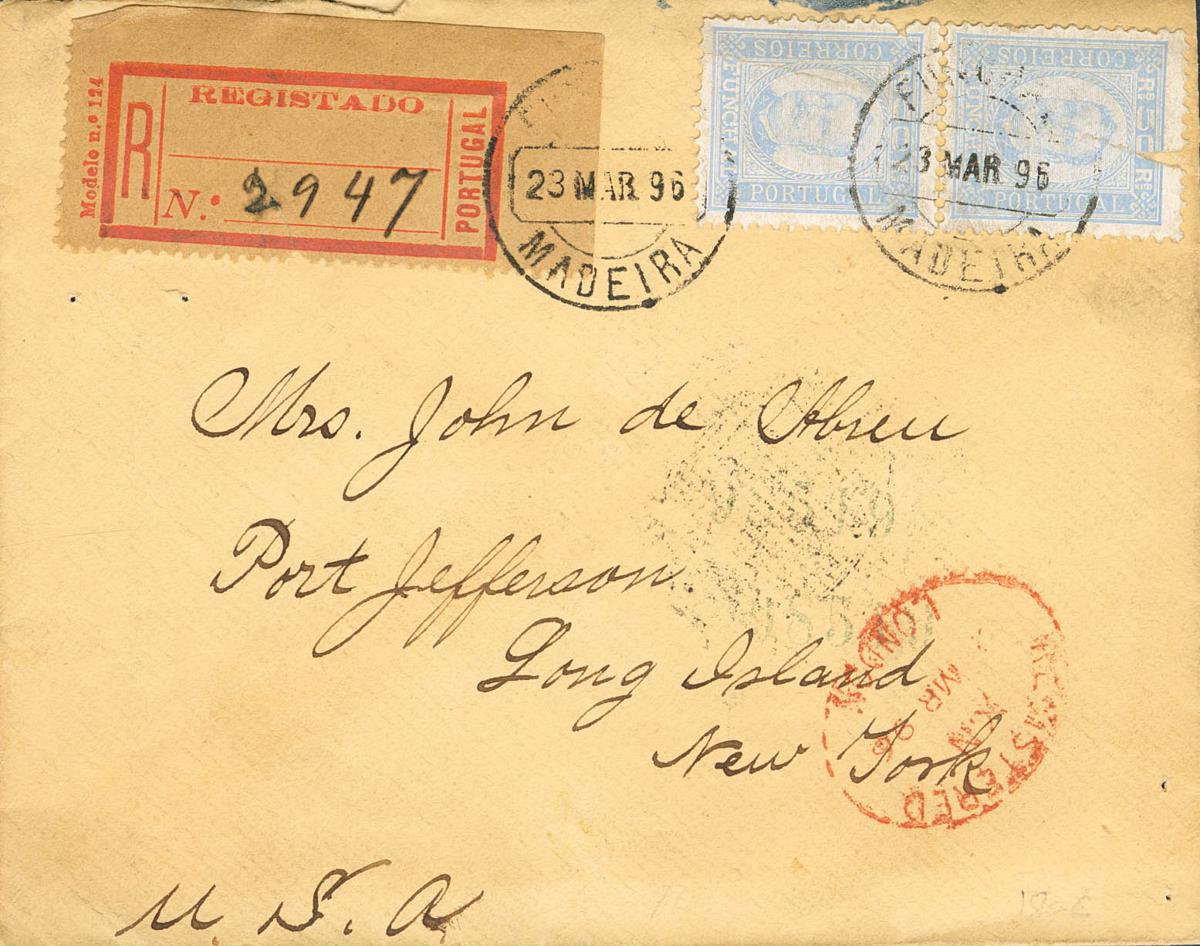 Modelo n.º 124
R
REGISTADO
N.º 2947
PORTUGAL
23 MAR 96
MADEIRA
CORREIOS
FUNCHAL
PORTUGAL
CORREIOS
PORTUGAL
23 MAR 96
MADEIRA
Mrs. John de Abreu
Port Jefferson
Long Island
New York
U. S. A
REGISTERED
MR 96
LONDON